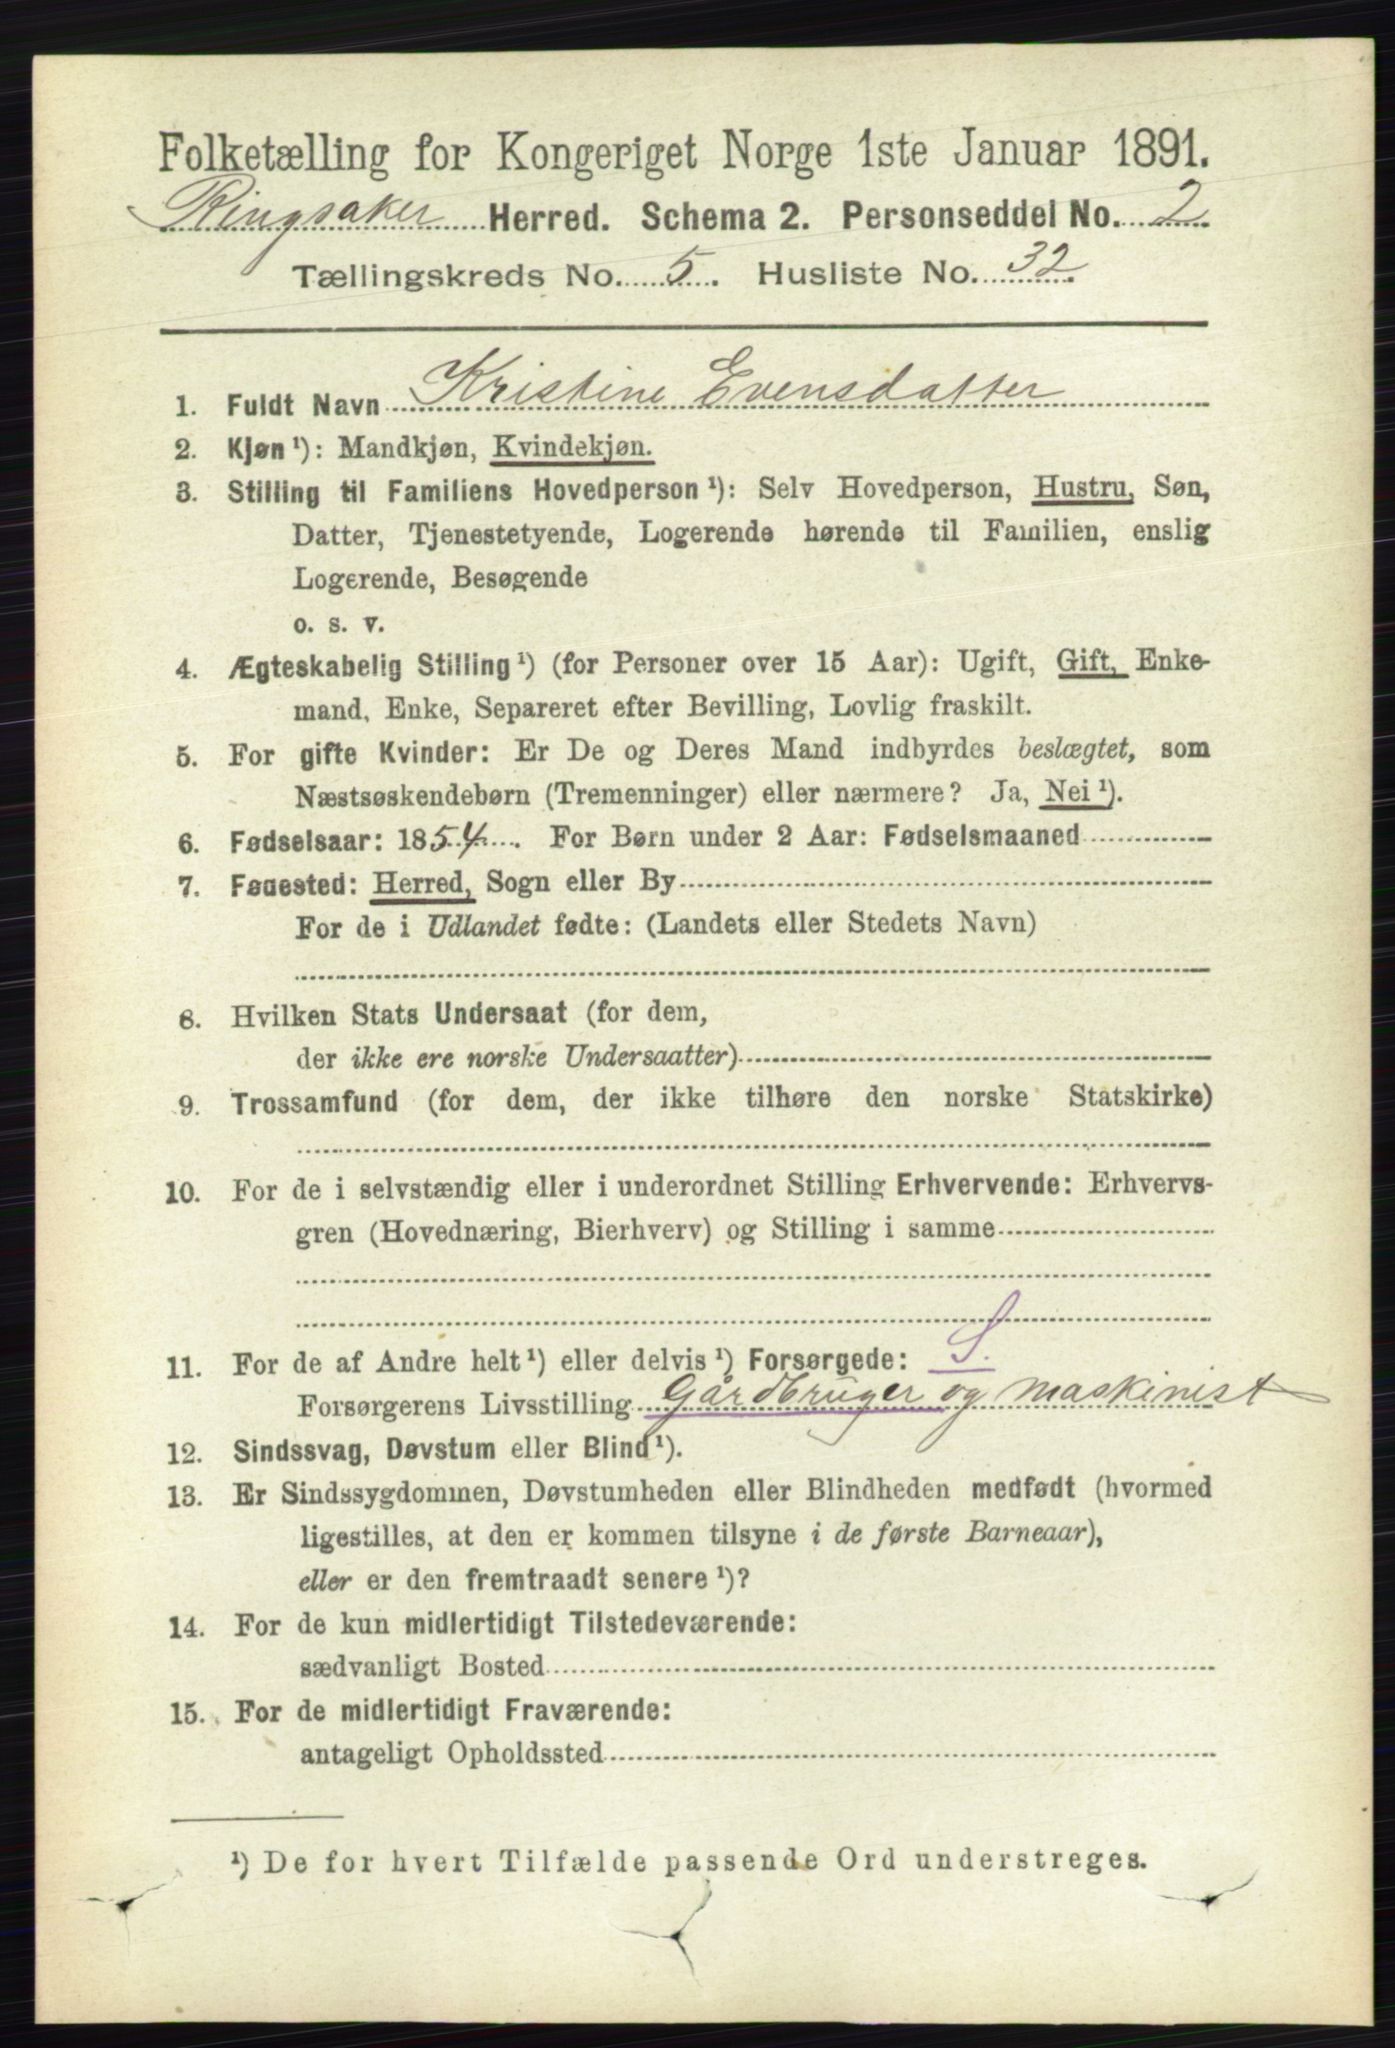 Folketælling for Kongeriget Norge 1ste Januar 1891.
Ringsaker Herred. Schema 2. Personseddel No. 2
Tællingskreds No. 5. Husliste No. 32.
1. Fuldt Navn Kristine Evensdatter
2. Kjøn ¹): Mandkjøn, Kvindekjøn.
3. Stilling til Familiens Hovedperson ¹): Selv Hovedperson, Hustru, Søn,
Datter, Tjenestetyende, Logerende hørende til Familien, enslig
Logerende, Besøgende
o. s. v.
4. Ægteskabelig Stilling ¹) (for Personer over 15 Aar): Ugift, Gift, Enke-
mand, Enke, Separeret efter Bevilling, Lovlig fraskilt.
5. For gifte Kvinder: Er De og Deres Mand indbyrdes beslægtet, som
Næstsøskendebørn (Tremenninger) eller nærmere? Ja, Nei ¹).
6. Fødselsaar: 1854. For Børn under 2 Aar: Fødselsmaaned
7. Fødested: Herred, Sogn eller By
For de i Udlandet fødte: (Landets eller Stedets Navn)
8. Hvilken Stats Undersaat (for dem,
der ikke ere norske Undersaatter)
9. Trossamfund (for dem, der ikke tilhøre den norske Statskirke)
10. For de i selvstændig eller i underordnet Stilling Erhvervende: Erhvervs-
gren (Hovednæring, Bierhverv) og Stilling i samme
11. For de af Andre helt ¹) eller delvis ¹) Forsørgede: S.
Forsørgerens Livsstilling Gårdbruger og maskinist
12. Sindssvag, Døvstum eller Blind ¹).
13. Er Sindssygdommen, Døvstumheden eller Blindheden medfødt (hvormed
ligestilles, at den er kommen tilsyne i de første Barneaar),
eller er den fremtraadt senere ¹)?
14. For de kun midlertidigt Tilstedeværende:
sædvanligt Bosted
15. For de midlertidigt Fraværende:
antageligt Opholdssted
¹) De for hvert Tilfælde passende Ord understreges.